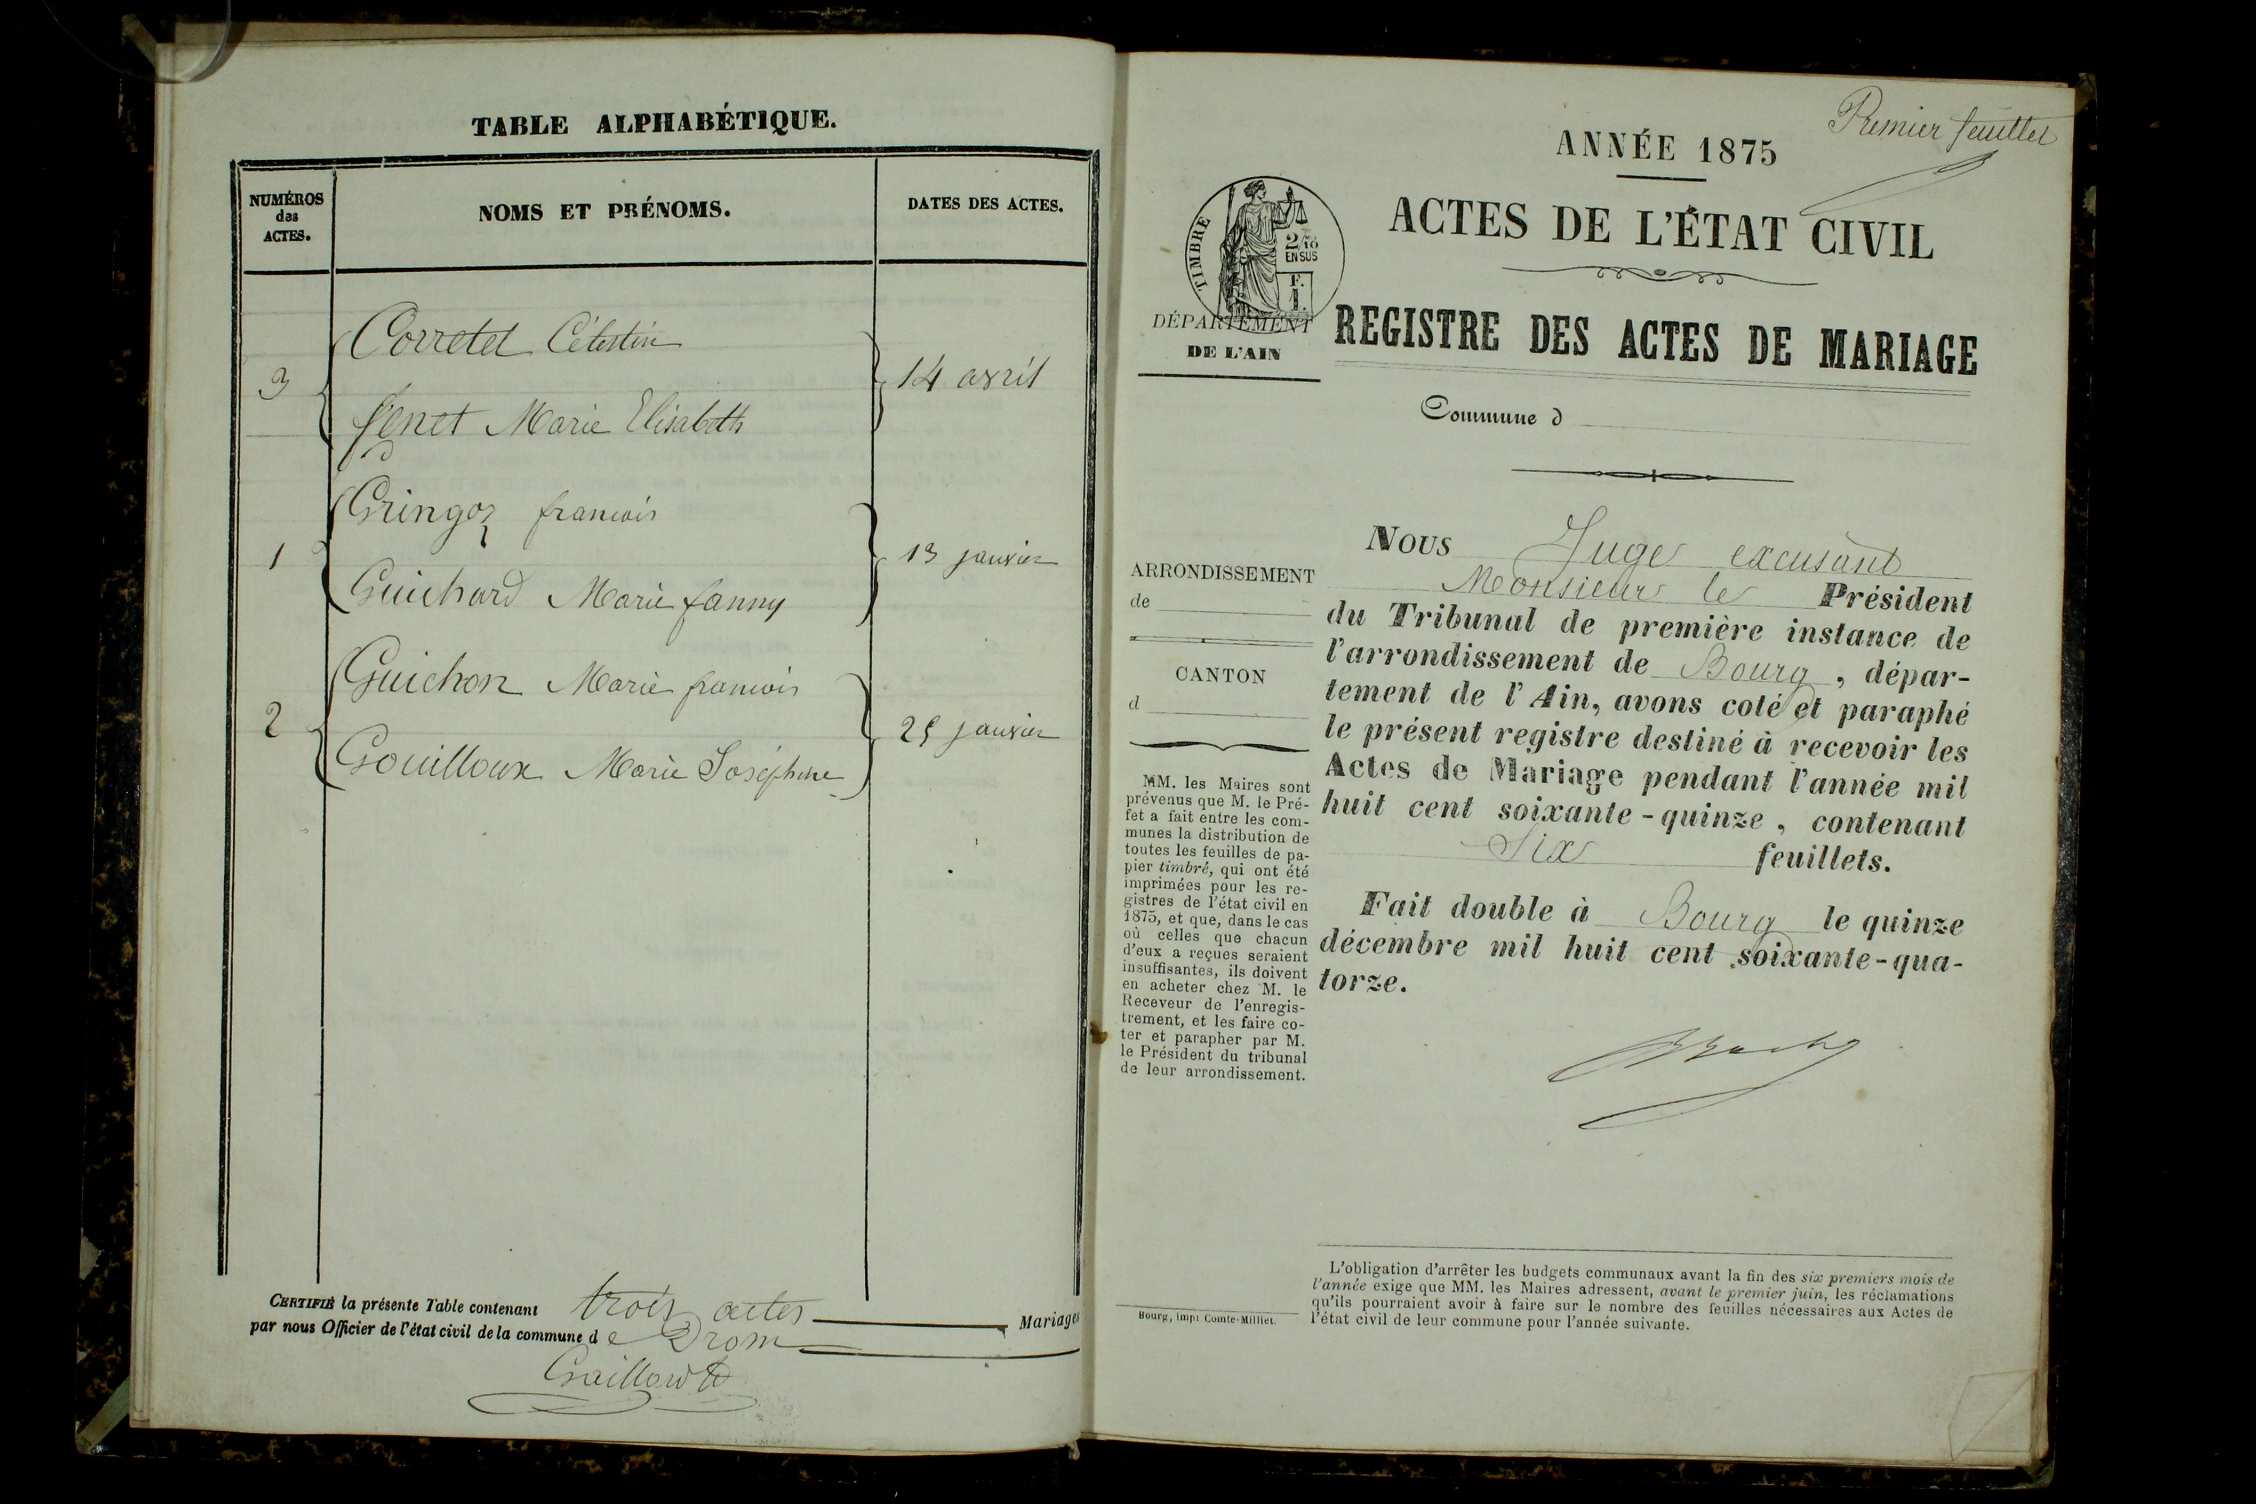 TABLE ALPHABÉTIQUE.
NUMÉROS
des
ACTES.
NOMS ET PRÉNOMS.
DATES DES ACTES.
Corretet Célestin
3
14 avril
fenet Marie Elisabeth
Gringoz francois
1
13 janvier
Guichard Marie fanny
Guichon Marie francois
2
25 janvier
Gouilloux Marie Joséphine
CERTIFIÉ la présente Table contenant trois actes Mariages
par nous Officier de l'état civil de la commune de Drom
Gaillard
Premier feuillet
ANNÉE 1875
ACTES DE L'ÉTAT CIVIL
TIMBRE
2/10
EN SUS
F.
1.
DÉPARTEMENT
DE L'AIN
REGISTRE DES ACTES DE MARIAGE
Commune d
ARRONDISSEMENT
de
CANTON
d
MM. les Maires sont
prévenus que M. le Pré-
fet a fait entre les com-
munes la distribution de
toutes les feuilles de pa-
pier timbré, qui ont été
imprimées pour les re-
gistres de l'état civil en
1875, et que, dans le cas
où celles que chacun
d'eux a reçues seraient
insuffisantes, ils doivent
en acheter chez M. le
Receveur de l'enregis-
trement, et les faire co-
ter et parapher par M.
le Président du tribunal
de leur arrondissement.
Nous Juge excusant
Monsieur le Président
du Tribunal de première instance de
l'arrondissement de Bourg, dépar-
tement de l'Ain, avons coté et paraphé
le présent registre destiné à recevoir les
Actes de Mariage pendant l'année mil
huit cent soixante-quinze, contenant
Six feuillets.
Fait double à Bourg le quinze
décembre mil huit cent soixante-qua-
torze.
Bourg, imp. Comte-Milliet.
L'obligation d'arrêter les budgets communaux avant la fin des six premiers mois de
l'année exige que MM. les Maires adressent, avant le premier juin, les réclamations
qu'ils pourraient avoir à faire sur le nombre des feuilles nécessaires aux Actes de
l'état civil de leur commune pour l'année suivante.